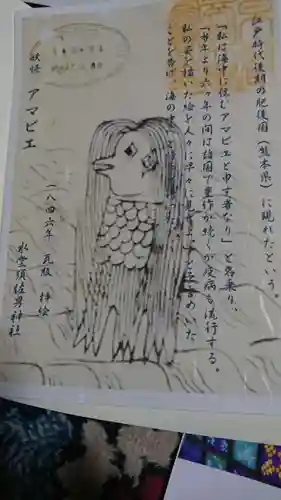 江戸時代後期の肥後国(熊本県)に現れたという。
「私は海中に住むアマビエと申す者なり」と名乗り、
「当年より六ヶ年の間は諸国で豊作が続くが疫病も流行する。
私の姿を描いた絵を人々に早々に見せ
海の中
妖怪 アマビエ
一八四六年 瓦版 挿絵
氷堂須佐男神社